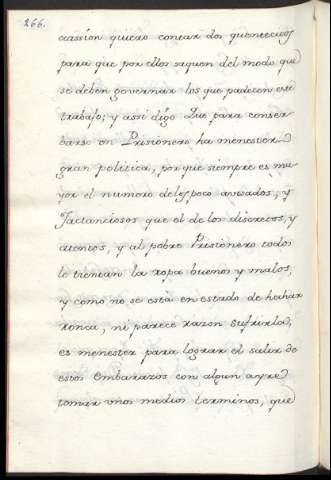 266.
cassion quiero contar dos quentecicos
para que por ellos saquen del modo que
se deben governar los que padecen este
trabajo; y assi digo Que para conser
barse un Prisionero ha menester
gran politica, porque siempre es ma-
yor el numero de los poco avisados, y
Jactanciosos que el de los discretos, y
atentos, y al pobre Prisionero todos
le tientan la ropa buenos y malos,
y como no se está en estado de hechar
ronca, ni parece razon sufrirla,
es menester para lograr el salir de
estos embarazos con algun ayre
tomar unos medios terminos, que